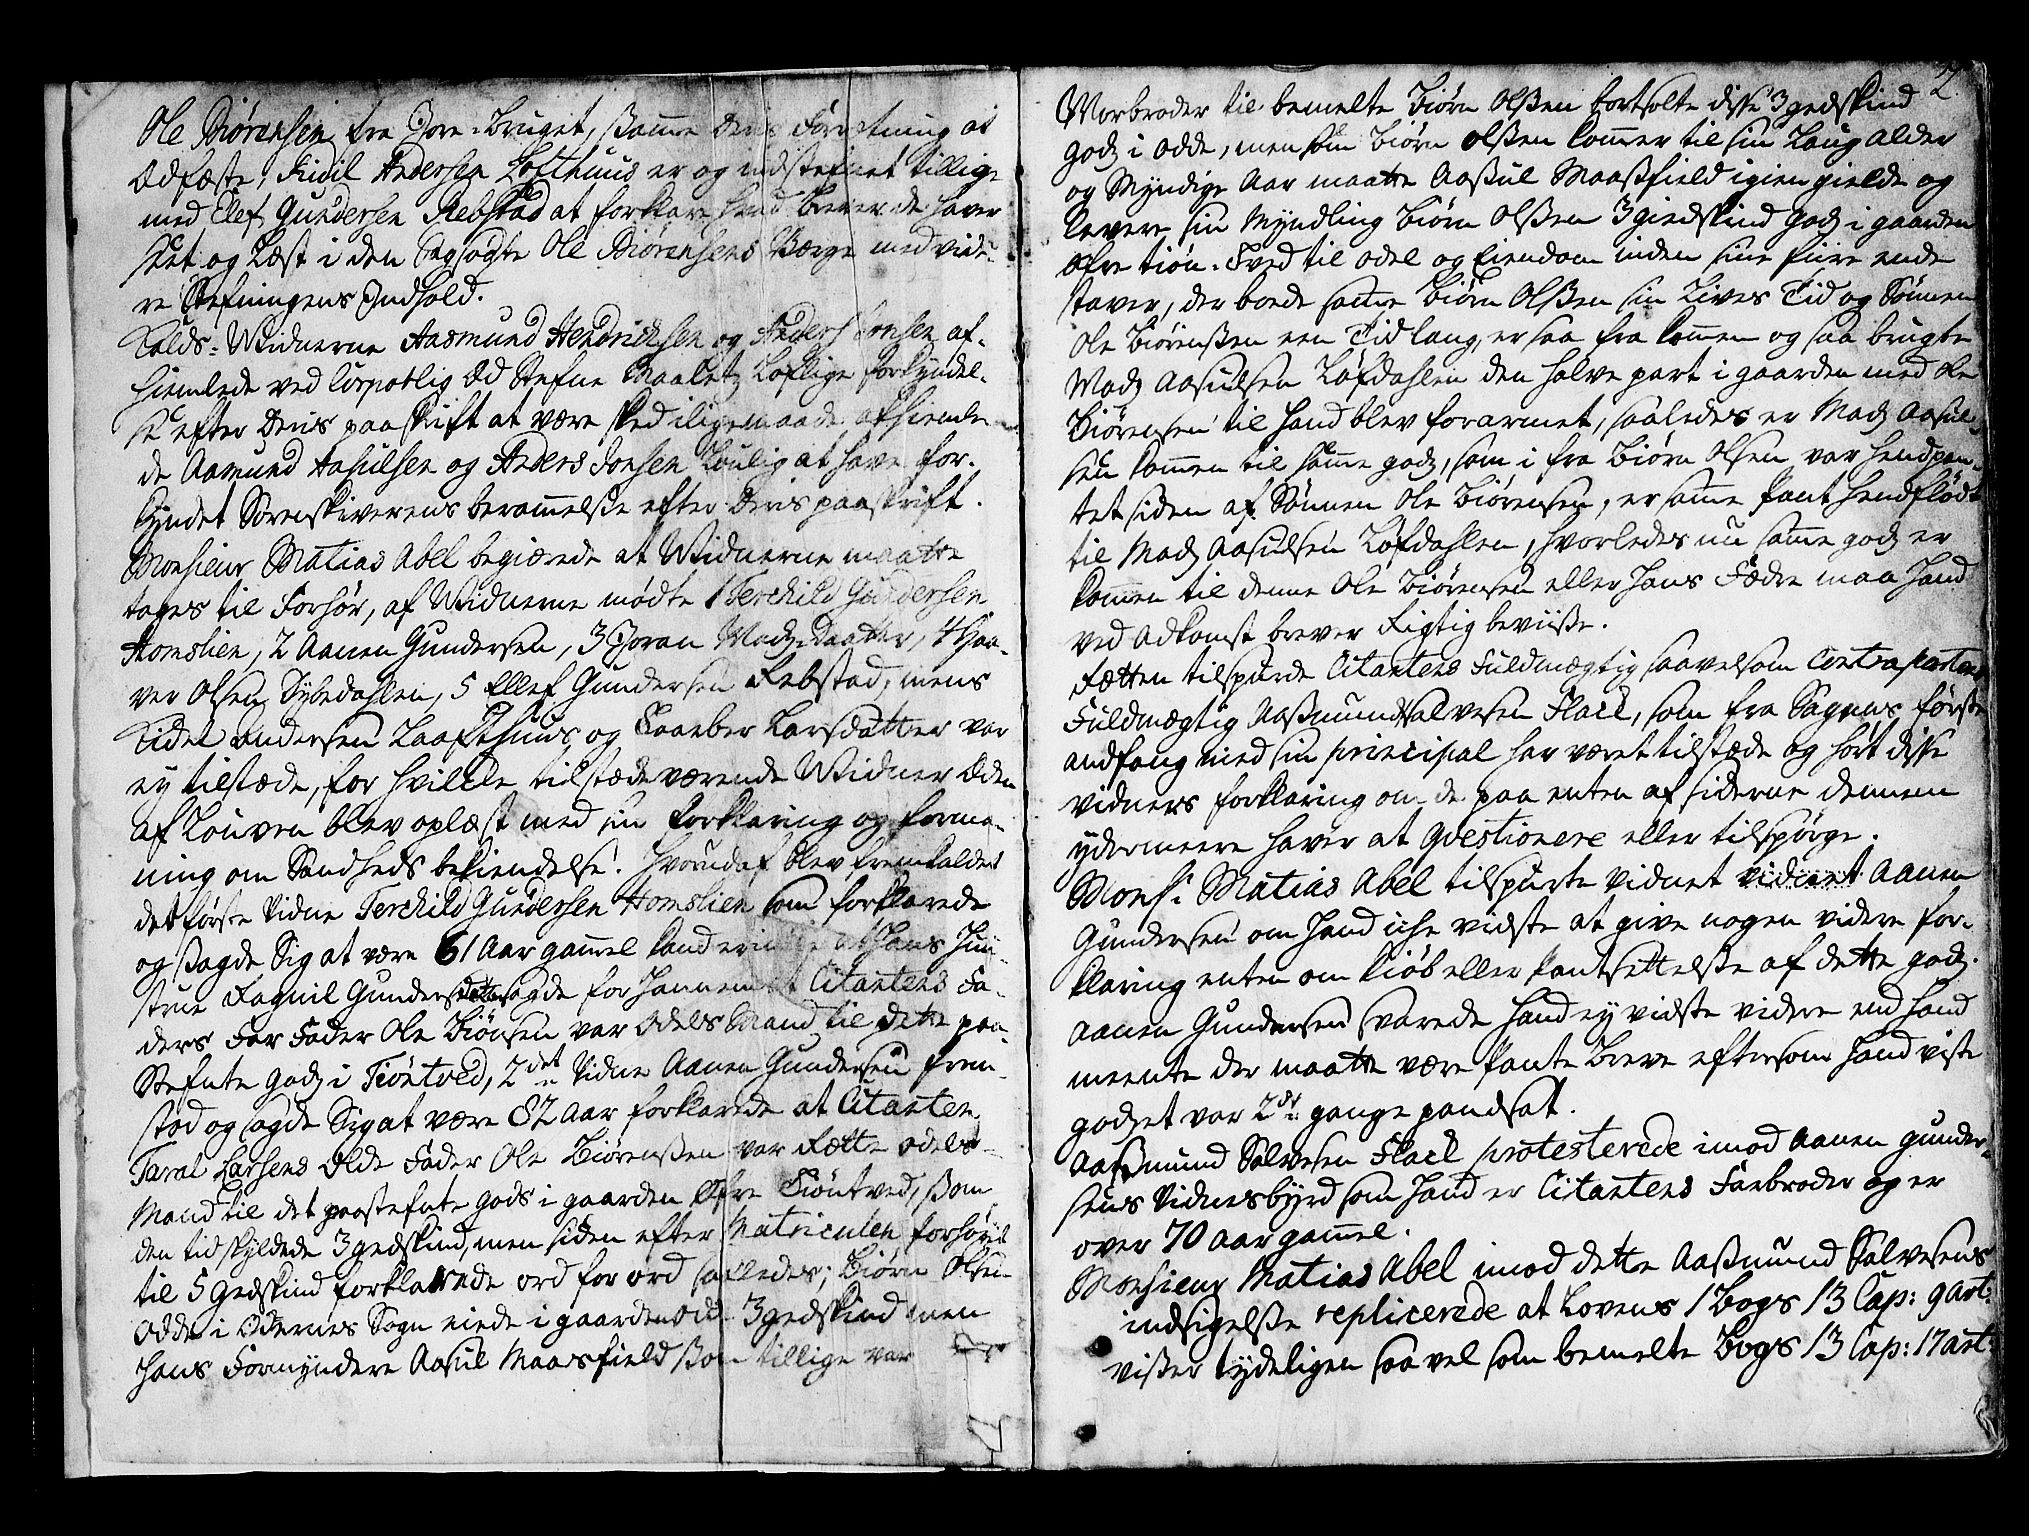 Ole Biørensen fra Jore-Bruget, samme Deris Forretning at
Edfæste, Kidil Andersen Lofthuus er og indstefnet tillige
med Elef Gundersen Rebstad at forklare hvad brever de haver
seet og Læst i den Sagsøgte Ole Biørensens Værge med vide-
re Stefningens Indhold.
Kalds-Widnerne Aasmund Hendrichsen og Anders Jonsen af-
hiemlede ved Corporlig Æd Stefne Maaletz Loflige forkyndel-
se efter Deris paaskrift at være skeed iligemaade afhiemle-
de Aamund Aasulsen og Anders Jonsen Loulig at have for-
kyndet Sorenskriverens berammelse efter Deris paaskrift.
Monsieur Matias Abel begiærede at Widnerne maatte
tages til Forhør, af Widnerne mødte 1 Terchild Gundersen
Homslien, 2 Aanen Gundersen, 3 Joran Madz Daatter, 4 Haa-
ver Olsen Sybedahlen, 5 Ellef Gundersen Rebstad, mens
Kidel Andersen Laafthuus og Taaber Larsdatter var
ey tilstæde, for hvilcke tilstædeværende Widner Eden
af Louven blev oplæst med sin Forklaring og forma-
ning om Sandheds bekiendelse. Hvorudaf blev fremkaldet
det første Vidne Terchild Gundersen Homslien som forklarede
og sagde Sig at være 61 Aar gammel kand erindre at Hans Huu-
strue Ragnil Gundersdatter sagde for hannem at Citantens Fa-
ders Far Fader Ole Biønsen var Odels Mand til dette paa-
Stefnte godz i Tiøntved, 2det Vidne Aanen Gundersen frem-
stod og sagde Sig at være 82 Aar forklarede at Citanten
Taral Larsens Olde Fader Ole Biørensen var Rætte odels-
Mand til det paastefnte gods i gaarden Øfre Tiøntved, som
den tid skyldede 3 gedskind, men siden efter Matriculen forhøyet
til 5 Gedskind forklarede ord for ord saaledes; Biørn Olsen
Odde i Odernes Sogn eiede i gaarden Odde 3 gedskind men
hans Formyndere Aasul Maasfield som tillige var
Morbroder til bemelte Biørn Olsen bortsolte disse 3 gedskind
godz i Odde, men som Biørn Olsen kommer til sin Laug alder
og Myndige Aar maatte Aasul Maasfield igien gielde og
levere sin Myndling Biørn Olsen 3 giedskind godz i gaarden
Øfre tiøn-Tved til odel og Eiendom inden sine fiire ende
staver, der boede samme Biørn Olsen sin Lives Tid og Sønnen
Ole Biørensen een Tid lang, er saa fra kommen og saa brugte
Madz Aasulsen Lofdahlen den halve part i gaarden med Ole
Biørensen til hand blev forarmet, saaledes er Madz Aasul-
sen kommen til samme godz, som i fra Biørn Olsen var hendpan-
tet siden af Sønnen Ole Biørensen, er samme Pant hendflødt
til Madz Aasulsen Lofdahlen, hvorledes nu samme godz er
kommen til denne Ole Biørensen eller hans Fædre maa hand
ved adkomst brever Rigtig beviise.
Rætten tilspurde Citantens Fuldmægtig saavelsom Contrapartens
Fuldmægtig Aasmund Salvesen Flack, som fra Sagens første
andfang med sin principal har været tilstæde og hørt disse
vidners forklaring om de paa enten af siderne dennem
ydermeere haver at qvestionere eller tilspørge.
Mons: Matias Abel tilspurte vidnet vidnet Aanen
Gundersen om hand icke vidste at give nogen videre for-
klaring enten om kiøb eller Pantsettelse af dette godz.
Aanen Gundersen svarede hand ey vidste videre end hand
meente der maatte være Pante Breve eftersom hand viste
godzet var 2de gange pandsat.
Aasmund Salvesen Flack protesterede imod Aanen Gunder-
sens Vidnesbyrd som hand er Citantens Farbroder og er
over 70 aar gammel.
Monsieur Matias Abel imod dette Aasmund Salvesens
indsigelse replicerede at Lovens 1 Bogs 13 Cap: 9 art:
viser tydeligen saa vel som bemelte Bogs 13 Cap: 17 art: